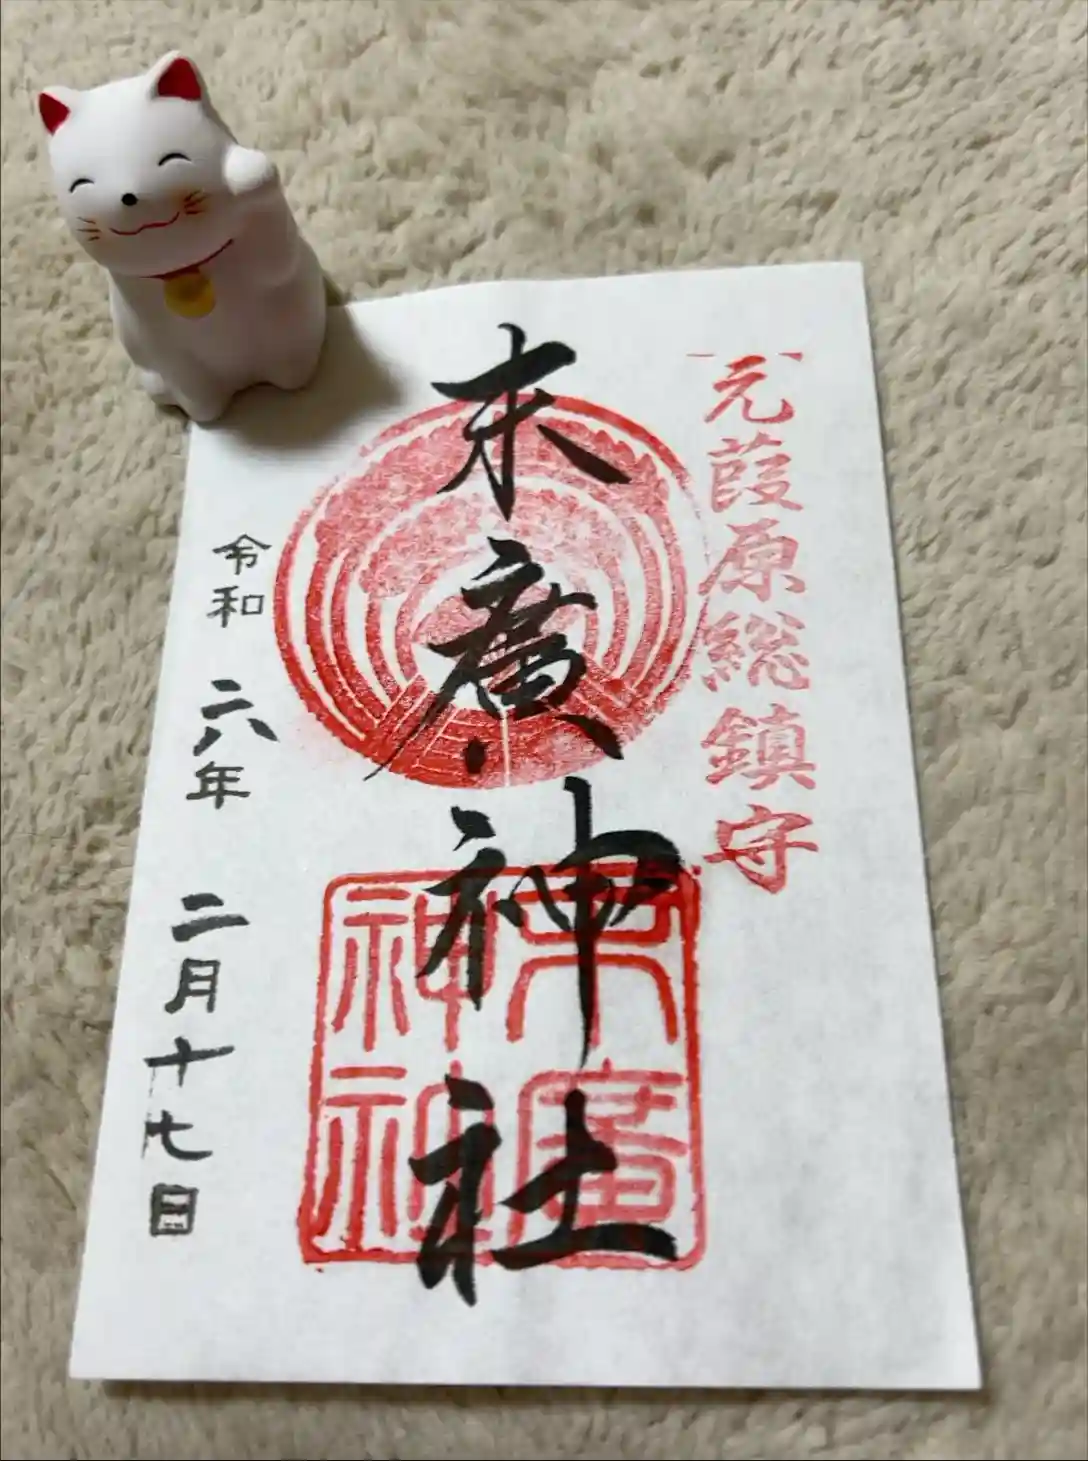 元葭原総鎮守
末廣神社
末廣
神社
令和 六年 二月十七日